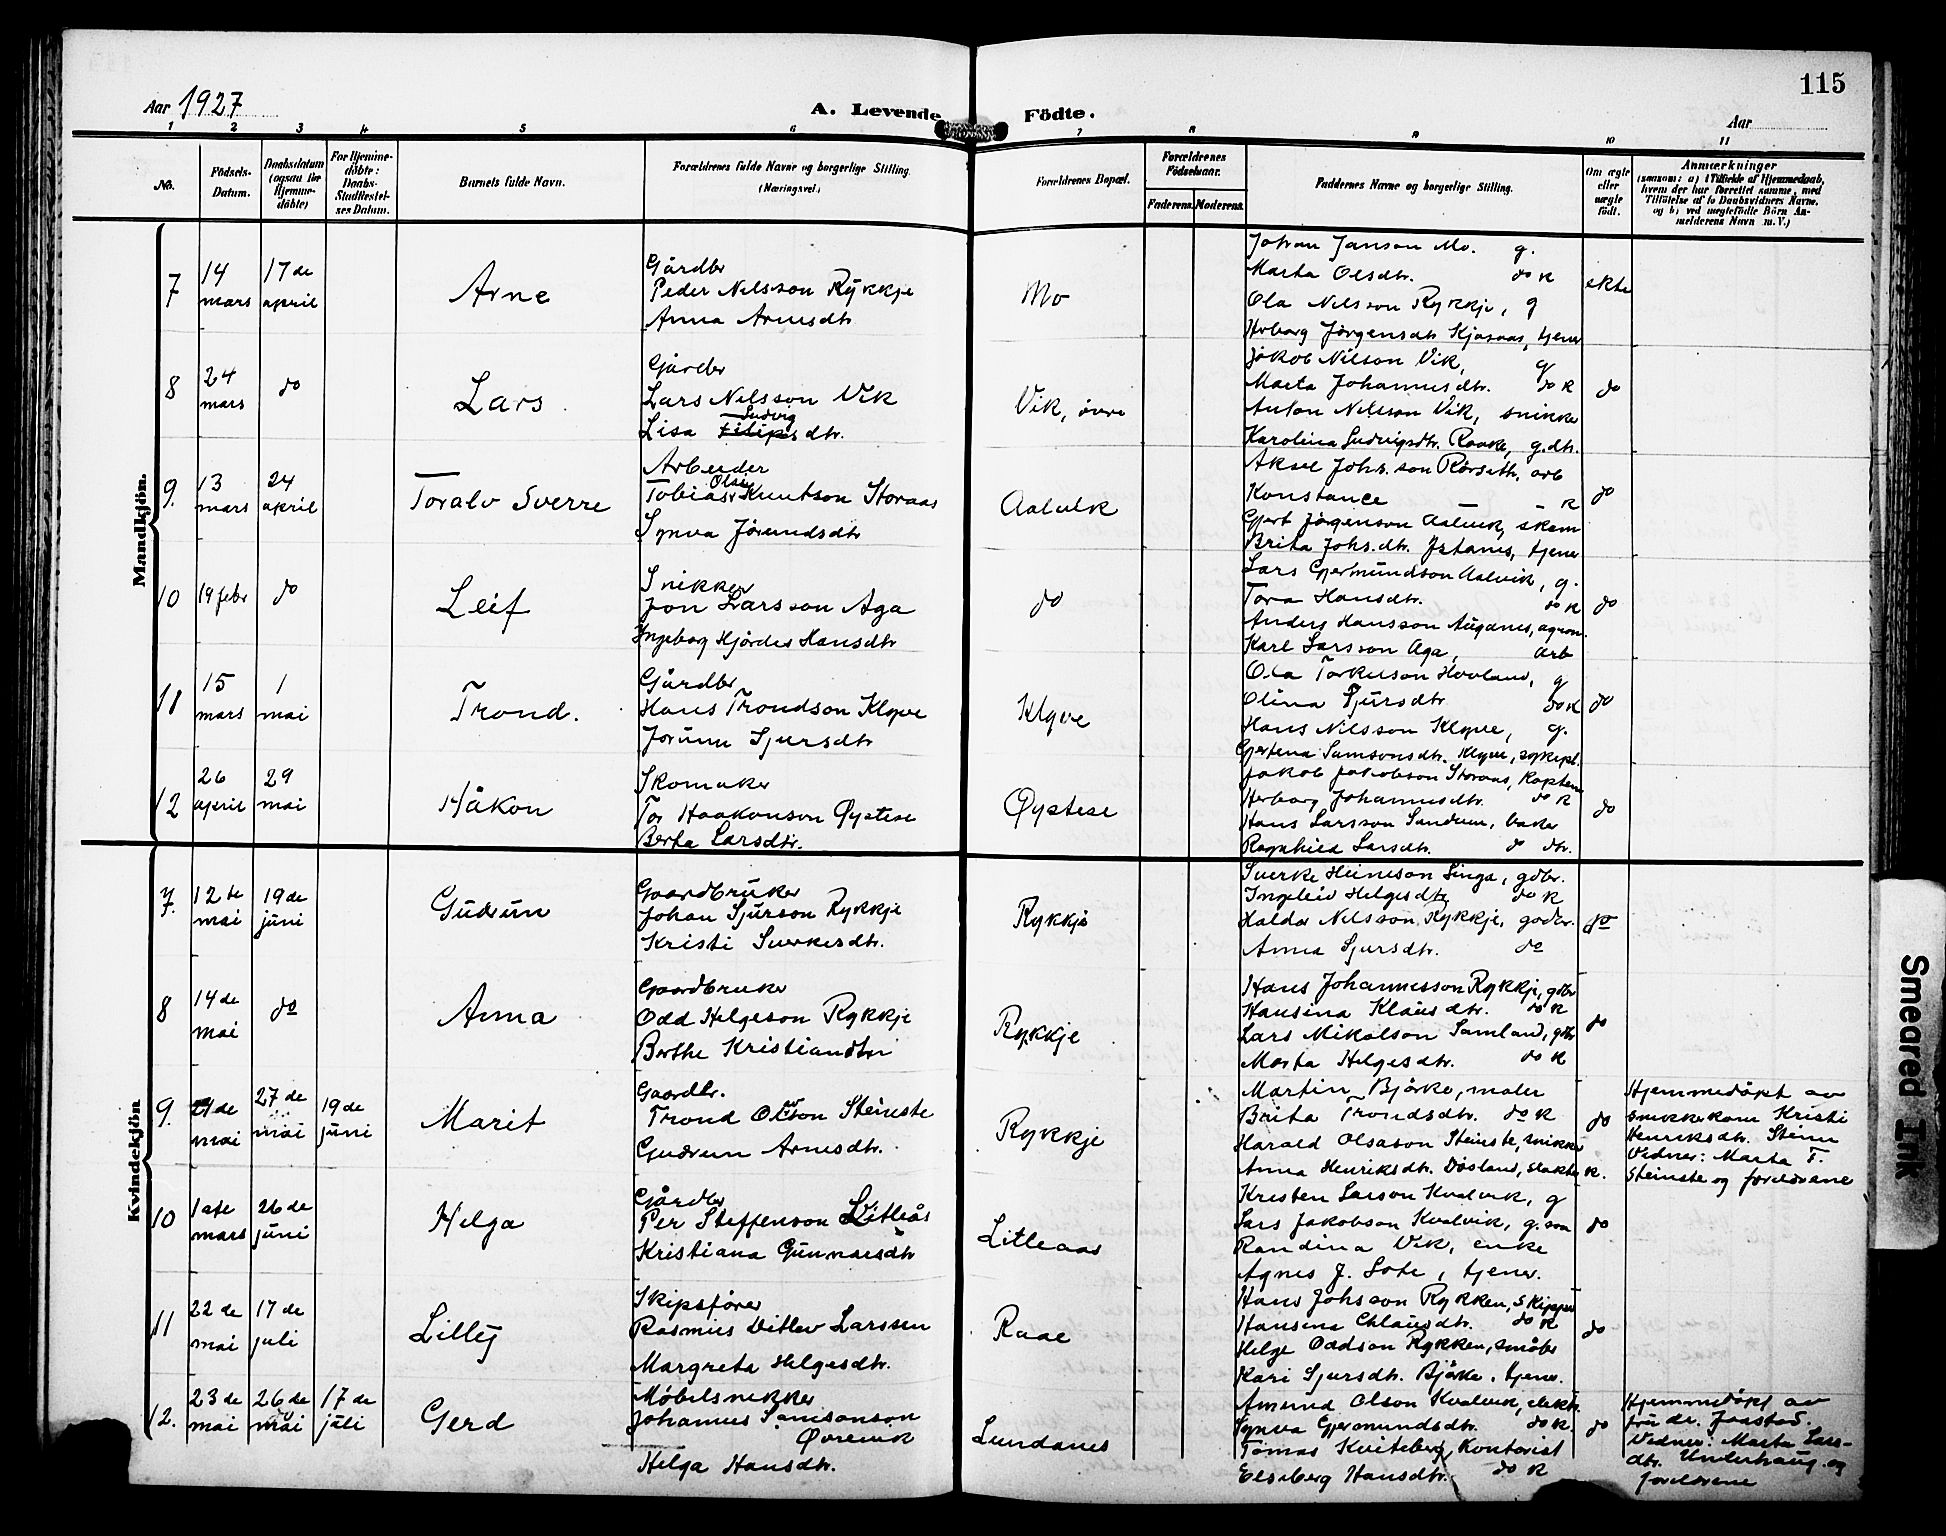 115
Aar 1927
A. Levende Födte.
Aar
1 2 3 4 5 6 7 8 9 10 11
No.
Födsels-Datum.
Daabsdatum (ogsaa for Hjemme-döbte)
For Hjemme-döbte: Daabs-Stadfæstel-ses Datum.
Barnets fulde Navn.
Forældrenes fulde Navne og borgerlige Stilling. (Næringsvei)
Forældrenes Bopæl.
Forældrenes Födselsaar.
Faderens. Moderens.
Faddernes Navne og borgerlige Stilling.
Om ægte eller uægte födt.
Anmærkninger
(saasom: a) i Tilfælde af Hjemmedaab,
hvem der har forrettet samme, med
Tilföielse af to Daabsvidners Navne.
og b) ved uægtefödte Börn An-
melderens Navn m. V.)
Mandkjön.
7
14 mars
17 de april
Arne
Gårdbr
Peder Nelsson Rykkje
Anna Arnesdtr
Mo
Johan Janson Mo. g.
Marta Olsdtr. do k
Ola Nelsson Rykkje, g
Herborg Jørgensdtr tjener
ekte
8
24 mars
do
Lars
Gårdbr
Lars Nelsson Vik
Lisa Ludvigsdtr.
Vik, övre
Jakob Nilson Vik, g
Marta Johannesdtr. do k
Anton Nelsson Vik, snikker
Karolina Ludvigsdtr. Raake, g.dtr.
do
9.
13 mars
24 april
Toralv Sverre
Arbeider
Tobias Olai Knutson Storaas
Synva Jörundsdtr
Aalvik
Aksel Johs.son Rörseth, arb
Konstance — - k
Gjert Jørgenson Aalvik, skom
Brita Johs.dtr. tjener
do
10
19 febr
do
Leif
Snikker
Jon Larsson Aga
Ingeborg Hjördes Hansdtr
do
Lars Gjermundson Aalvik, g.
Tora Hansdtr. do k
Anders Hansson agron.
Karl Larsson Aga, Arb
do
11
15 mars
1 mai
Trond.
Gårdbr
Hans Trondson Klyve
Jorunn Sjursdtr
Klyve
Ola Torkelson Hovland, g
Olina Sjursdtr do k
Hans Nilsson Klyve, g.
Gjertena Samsonsdtr. Klyve, sykepl.
do
12
26 april
29 mai
Håkon
Skomaker
Tor Haakonson Øystese
Berta Larsdtr.
Øystese
Jakob Jakobson Storaas, Kaptein
Herborg Johannesdtr. do k
Hans Larsson Sandven, baker
Ragnhild Larsdtr. do dtr.
do
Kvindekjön
7.
12te mai
19 de juni
Gudrun
Gaardbruker
Johan Sjurson Rykkje
Kristi Sverkesdtr.
Rykkje
Sverke Heineson Linga, gdbr.
Ingeleiv Helgesdtr do k
Haldor Nelsson Rykkje, gdbr.
Anna Sjursdtr. do
do
8
14 de mai
do
Anna
Gaardbruker
Odd Helgeson Rykkje
Berthe Kristiandtr
Rykkje
Hans Johannesson Rykkje, gdbr
Hansina Klausdtr. do k
Lars Mikalson Samland, gdbr
Marta Helgesdtr. do k
do
9.
de mai
27 de mai
19 de juni
Marit
Gaardbr.
Trond Olason Steinste
Gudrun Arnesdtr.
Rykkje
Martin Björke, maler
Brita Trondsdtr. do k
Harald Olsason Steinste, snikker
Anna Henriksdtr. k.
do
Hjemmedöpt av
snikkerkone Kristi
Henriksdtr.
Vedner: Marta T.
Steinste og foreldrene
10
1ste mars
26 de juni
Helga
Gårdbr
Per Steffenson Litleås
Kristiana Gunnarsdtr
Litleaas
Kristen Larson Kvalvik, g
Lars Jakobson Kvalvik, g.søn
Randina Vik, enke
Agnes J. Sote, tjener.
do
11
22 de mai
17 de juli
Lilly
Skipsförer
Rasmus Ditlev Larssen
Margreta Helgesdtr.
Raae
Hans Johsson Rykken, Skipper
Hansina Chlausdtr. do k
Helge Oddson Rykken, småbr
Kari Sjursdtr. Björke, tjener.
do
12.
23 de mai
26 de mai
17 de juli
Gerd
Möbelsnekker
Johannes Samsonson
Övrevik
Helga Hansdtr.
Lundanes
Amund Olson Kvalvik, elektr.
Synva Gjermundsdtr. do k.
Tomas Kviteberg, Kontorist
Elseberg Hansdtr. do k
do
Hjemmedöpt av
frü dr. Jaastad.
Vedner: Marta Lars-
dtr. Underhaug og
foreldrene
Smeared Ink